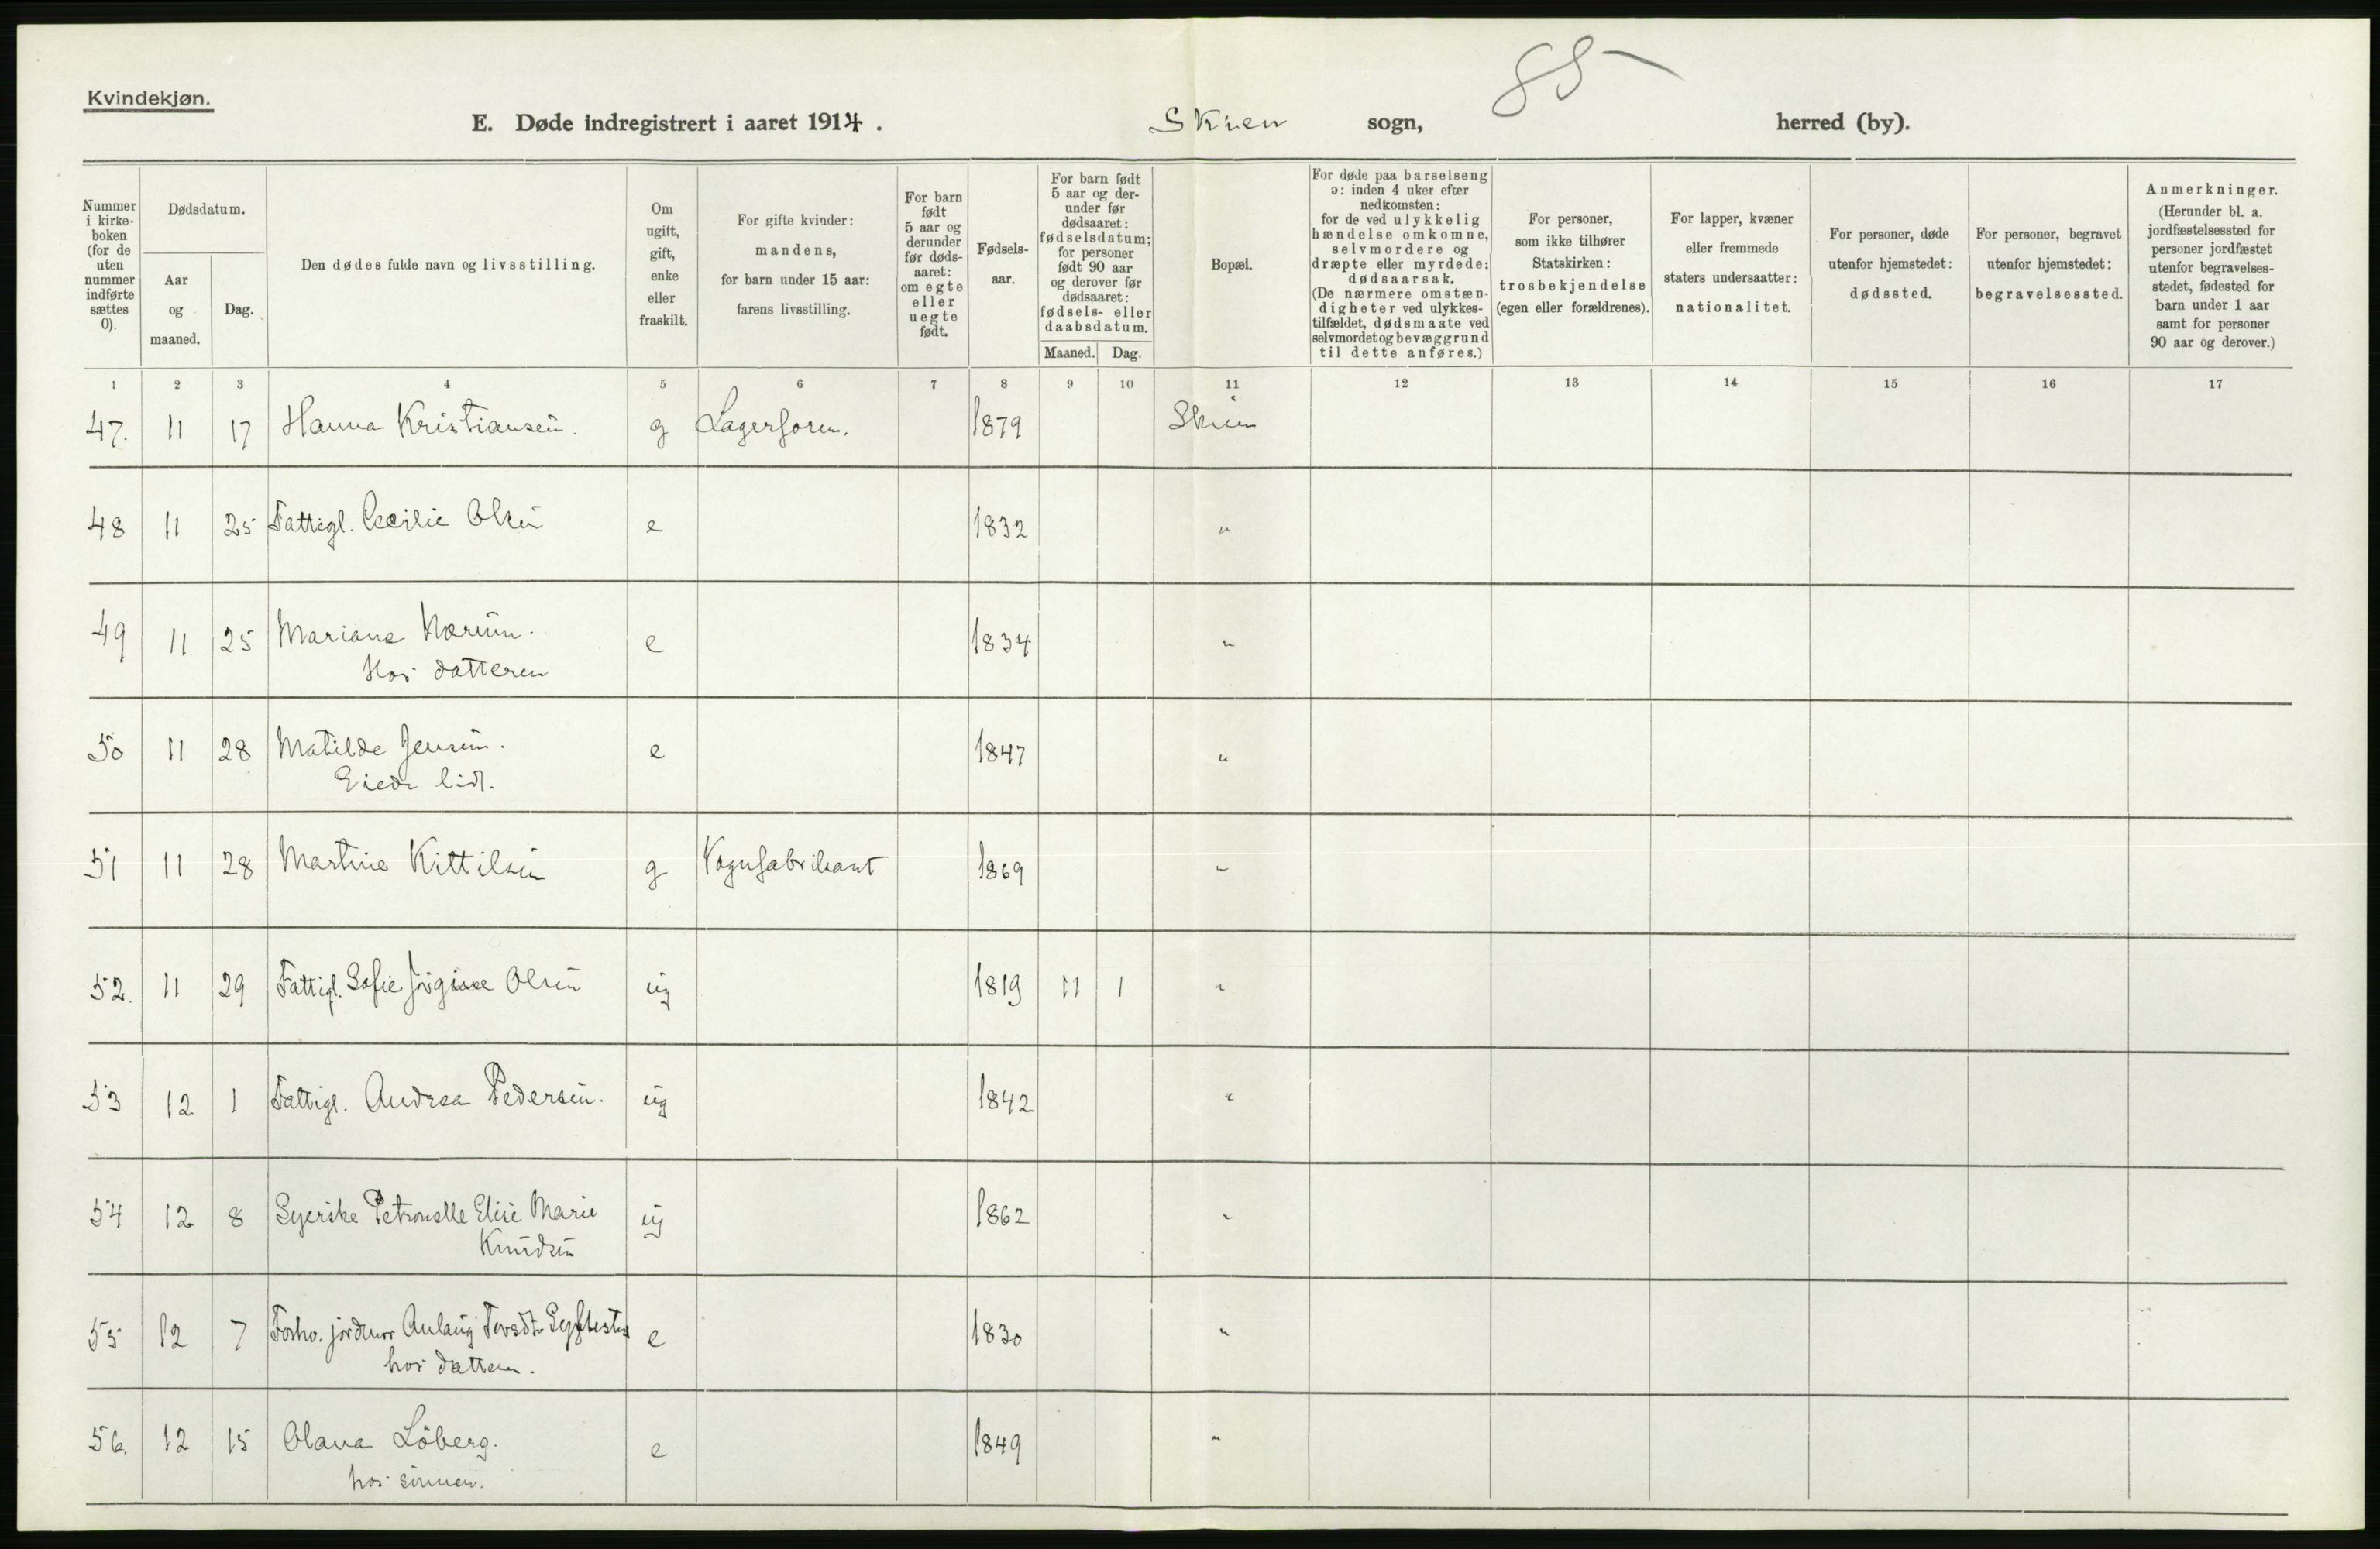 Kvindekjøn.
85
E. Døde indregistrert i aaret 1914. Skien sogn, herred (by).
Nummer i kirke- boken (for de uten nummer indførte sættes 0).
Dødsdatum.
Aar og maaned.
Dag.
Den dødes fulde navn og livsstilling.
Om ugift, gift, enke eller fraskilt.
For gifte kvinder: mandens, for barn under 15 aar: farens livsstilling.
For barn født 5 aar og derunder før døds- aaret: om egte eller uegte født.
Fødsels- aar.
For barn født 5 aar og der- under før dødsaaret: fødselsdatum; for personer født 90 aar og derover før dødsaaret: fødsels- eller daabsdatum.
Maaned. Dag.
Bopæl.
For døde paa barselseng ɔ: inden 4 uker efter nedkomsten: for de ved ulykkelig hændelse omkomne, selvmordere og dræpte eller myrdede: dødsaarsak. (De nærmere omstæn- digheter ved ulykkes- tilfældet, dødsmaate ved selvmordet og bevæggrund til dette anføres.)
For personer, som ikke tilhører Statskirken: trosbekjendelse (egen eller forældrenes).
For lapper, kvæner eller fremmede staters undersaatter: nationalitet.
For personer, døde utenfor hjemstedet: dødssted.
For personer, begravet utenfor hjemstedet: begravelsessted.
Anmerkninger. (Herunder bl. a. jordfæstelsessted for personer jordfæstet utenfor begravelses- stedet, fødested for barn under 1 aar samt for personer 90 aar og derover.)
1 2 3 4 5 6 7 8 9 10 11 12 13 14 15 16 17
47. 11 17 Hanna Kristiansen. g Lagerform. 1879 Skien
48 11 25 Fattigl. Cecilie Olsen e 1832 "
49 11 25 Mariane Nærum. e 1834 "
Hos datteren
50 11 28 Matilde Jensen. e 1847 "
Eiede lidt.
51 11 28 Martine Kittilsen g Vognfabrikant 1869 "
52. 11 29 Fattigl. Sofie Olsen ug 1819 11 1 "
53 12 1 Fattigl. Andrea Pedersen. ug 1842 "
54 12 8 Syerske Petronelle Elise Marie ug 1862 "
Knudsen
55 12 7 Forhv. jordmor Aulaug e 1830 "
hos datteren.
56. 12 15 Olava Löberg. e 1849 "
hos sönnen.